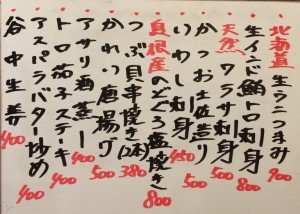 北海道 生ウニつまみ 900
生インド鮪トロ刺身 800
天然 ワラサ刺身 500
かつお土佐造り 500
いわし刺身 450
島根産 のどぐろ塩焼き 800
つぶ貝串焼き(2本) 380
かれい唐揚げ 500
アサリ酒蒸し 400
トロ茄子ステーキ 400
アスパラバター炒め 400
谷中生姜 400